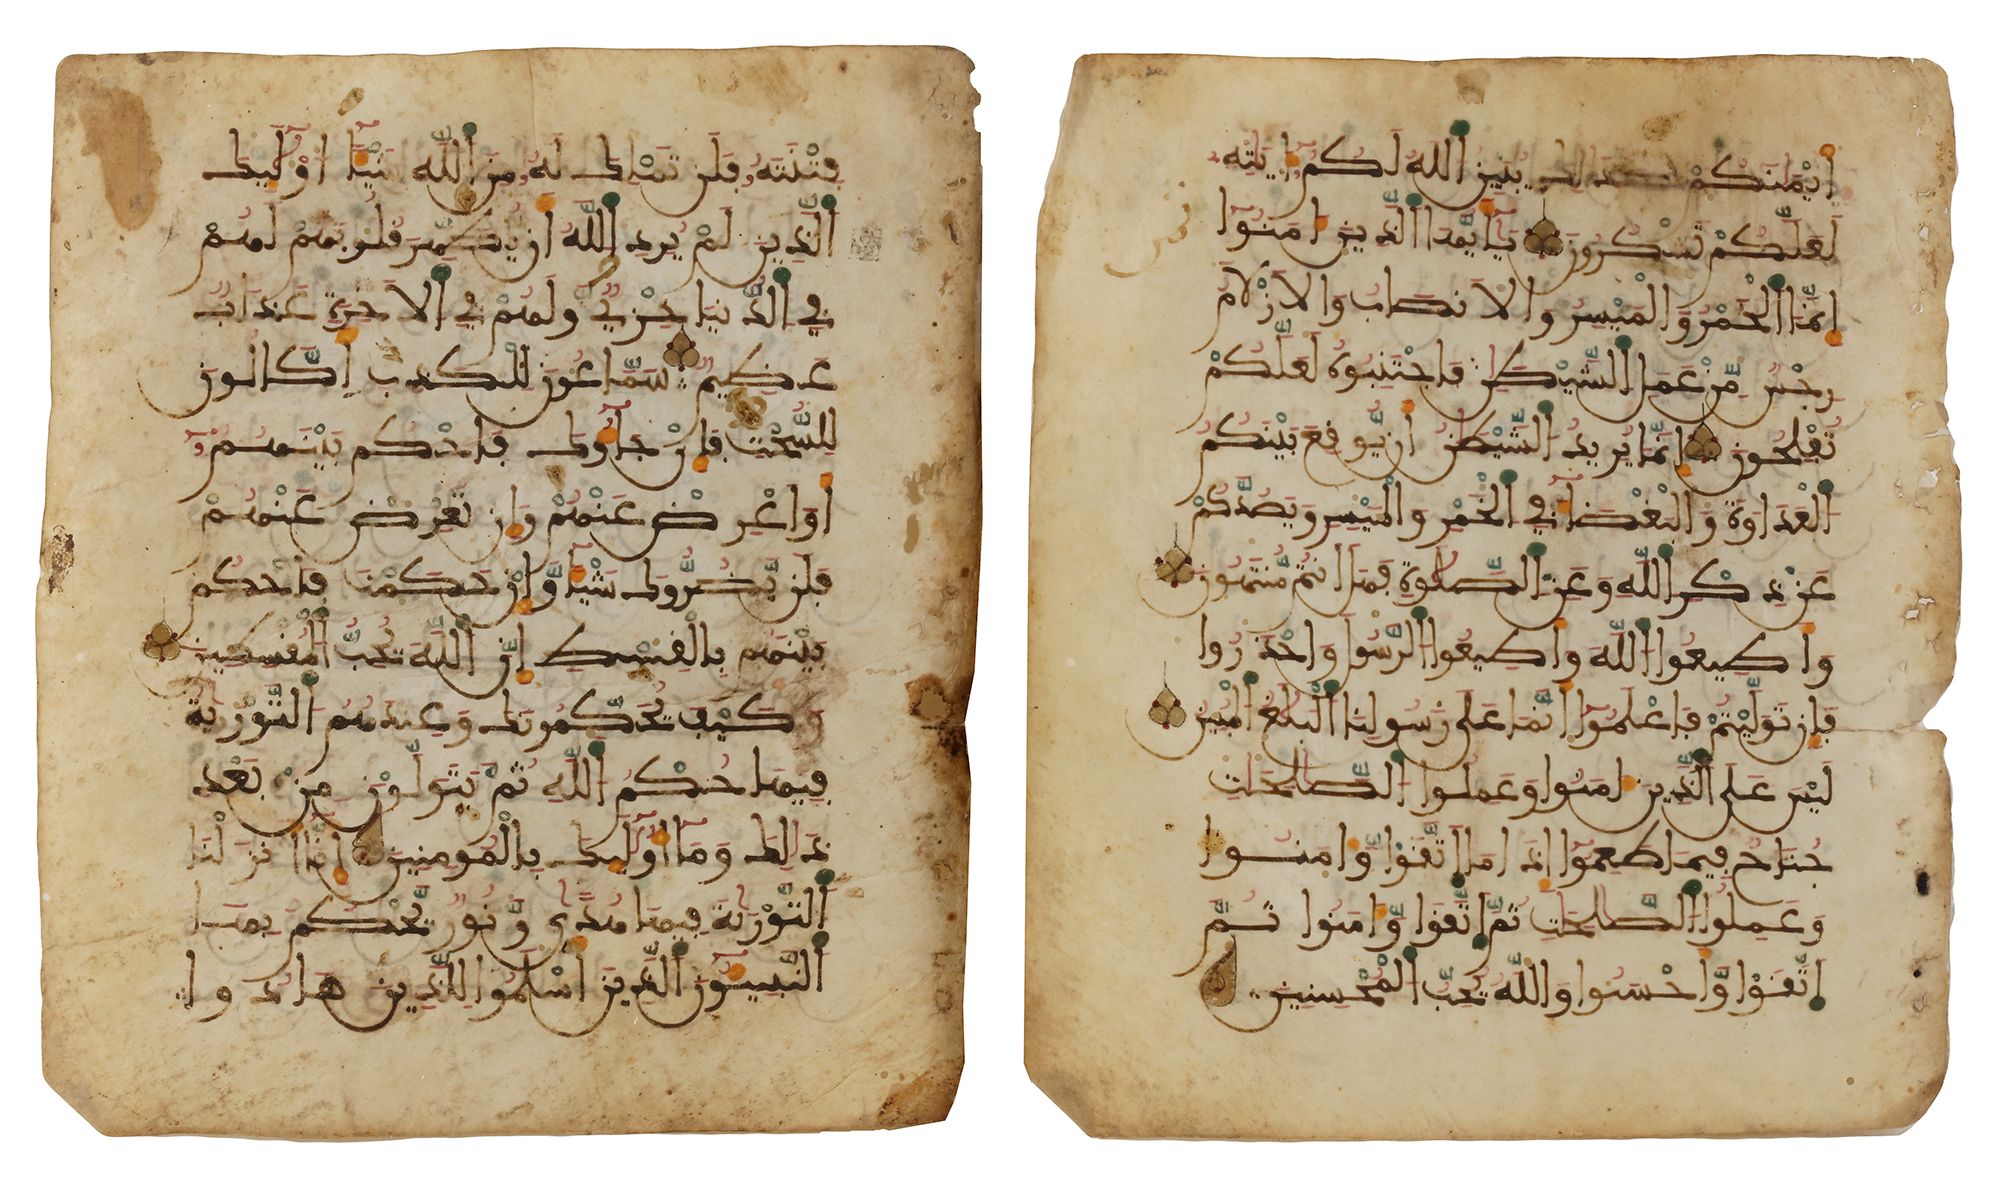 ايمنكم كذلك يبين الله لكم ايته
لعلكم تشكرون يايها الذين امنوا
انما الخمر والميسر والانصاب والازلام
رجس من عمل الشيطن فاجتنبوه لعلكم
تفلحون انما يريد الشيطن ان يوقع بينكم
العداوة والبغضا في الخمر والميسر ويصدكم
عن ذكر الله وعن الصلوة فهل انتم منتهون
واطيعوا الله واطيعوا الرسول واحذروا
فان توليتم فاعلموا انما على رسولنا البلغ المبين
ليس على الذين امنوا وعملوا الصلحت
جناح فيما طعموا اذا ما اتقوا وامنوا
وعملوا الصلحت ثم اتقوا وامنوا ثم
اتقوا واحسنوا والله يحب المحسنين
فتنته فلن تملك له من الله شيا اوليك
الذين لم يرد الله ان يطهر قلوبهم لهم
في الدنيا خزي ولهم في الاخرة عذاب
عظيم سمعون للكذب اكلون
للسحت فان جاوك فاحكم بينهم
او اعرض عنهم وان تعرض عنهم
فلن يضروك شيا وان حكمت فاحكم
بينهم بالقسط ان الله يحب المقسطين
وكيف يحكمونك وعندهم التورية
فيها حكم الله ثم يتولون من بعد
ذلك وما اوليك بالمومنين انا انزلنا
التورية فيها هدى ونور يحكم بها
النبيون الذين اسلموا للذين هادوا